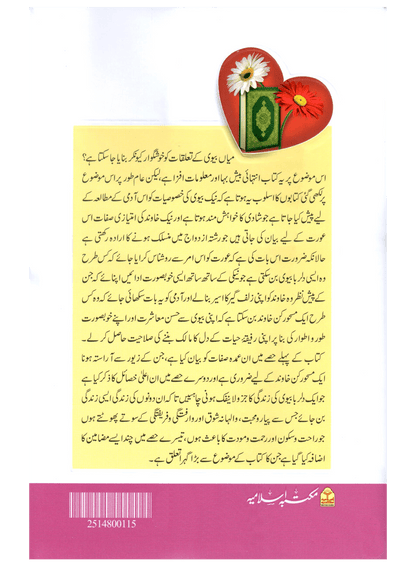 میاں بیوی کے تعلقات کو خوشگوار کیونکر بنایا جا سکتا ہے؟
اس موضوع پر یہ کتاب انتہائی بیش بہا اور معلومات افزا ہے، لیکن عام طور پر اس موضوع
پر لکھی گئی کتابوں کا اسلوب یہ ہوتا ہے کہ نیک بیوی کی خصوصیات کو اس آدمی کے مطالعہ کے
لیے پیش کیا جاتا ہے جو شادی کا خواہش مند ہوتا ہے اور نیک خاوند کی امتیازی صفات اس
عورت کے لیے بیان کی جاتی ہیں جو رشتۂ ازدواج میں منسلک ہونے کا ارادہ رکھتی ہے
حالانکہ ضرورت اس بات کی ہے کہ عورت کو اس امر سے روشناس کرایا جائے کہ کس طرح
وہ ایسی دلربا بیوی بن سکتی ہے جو نیکی کے ساتھ ساتھ ایسی خوبصورت ادائیں اپنائے کہ جن کے
پیش نظر وہ خاوند کو اپنی زلف گیر کا اسیر بنا لے اور آدمی کو یہ بات سکھائی جائے کہ وہ کس
طرح ایک مسحور کن خاوند بن سکتا ہے کہ اپنی بیوی سے حسن معاشرت اور اپنے خوبصورت
طور و اطوار کی بنا پر اپنی رفیقۂ حیات کے دل کا مالک بننے کی صلاحیت حاصل کر لے۔
کتاب کے پہلے حصے میں ان عمدہ صفات کو بیان کیا ہے، جن کے زیور سے آراستہ ہونا
ایک مسحور کن خاوند کے لیے ضروری ہے اور دوسرے حصے میں ان اعلیٰ خصائل کا ذکر کیا ہے
جو ایک دلربا بیوی کی زندگی کا جزو لاینفک ہونی چاہییں تاکہ ان دونوں کی زندگی ایسی زندگی
بن جائے جس سے پیار و محبت، والہانہ شوق اور وارفتگی و فریفتگی کے سوتے پھوٹتے ہوں
جو راحت و سکون اور رحمت و مودت کا باعث ہوں، تیسرے حصے میں چند ایسے مضامین کا
اضافہ کیا گیا ہے جن کا کتاب کے موضوع سے بڑا گہرا تعلق ہے۔
مکتبہ اسلامیہ
2514800115